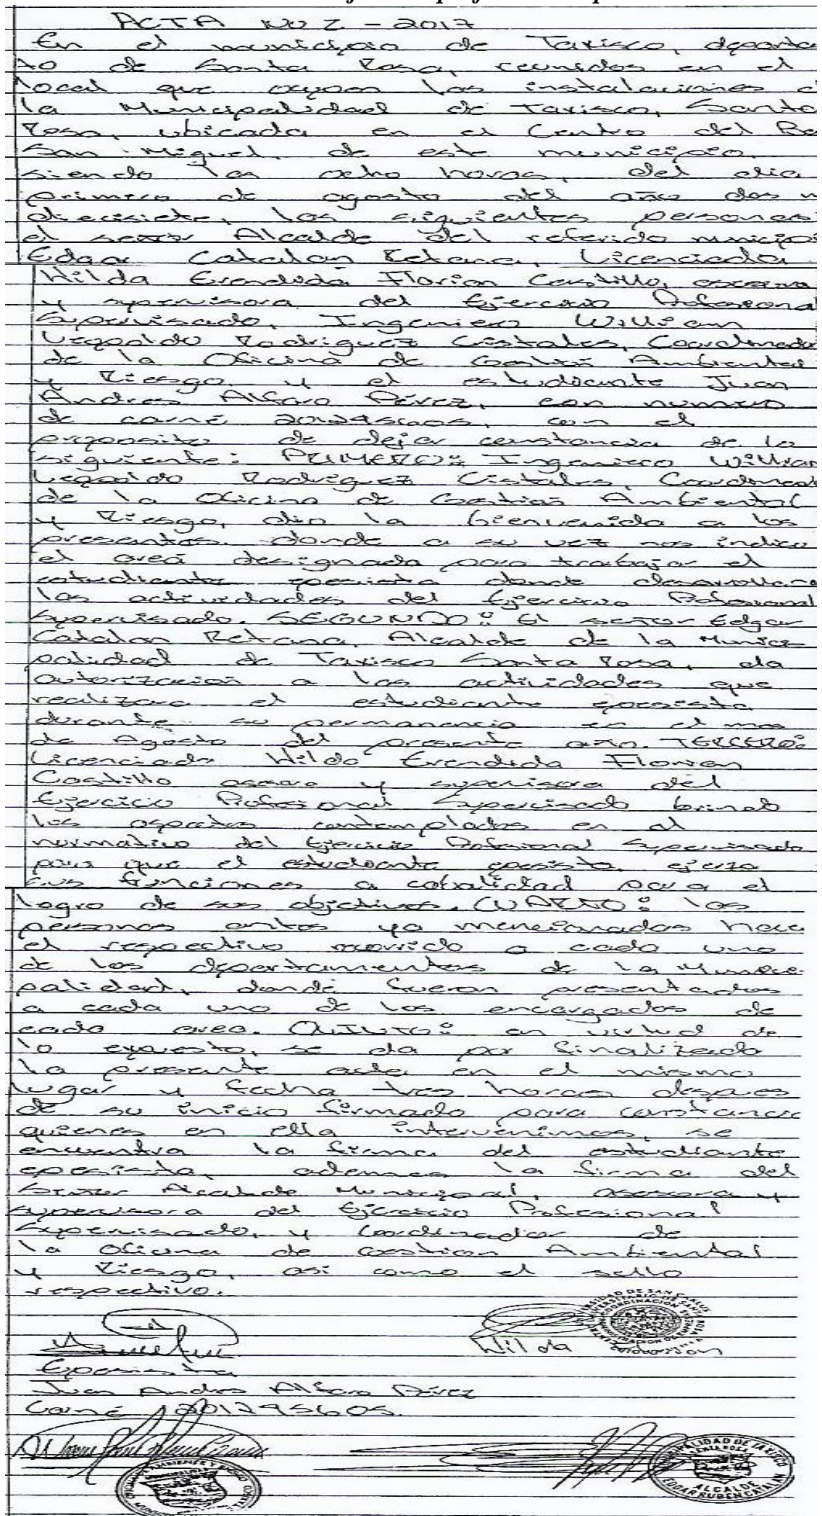 ACTA No. 2 - 2017
En el municipio de Taxisco, departa
to de Santa Rosa, reunidos en el
local que ocupan las instalaciones d
la Municipalidad de Taxisco, Santa
Rosa, ubicada en el Centro del Ba
San Miguel, de este municipio,
siendo las ocho horas, del dia
primero de agosto del año dos m
diecisiete, las siguientes personas:
el señor Alcalde del referido municipi
Edgar Catalan Retana, Licenciada
Hilda Erendida Florian Castillo, asesora
y supervisora del Ejercicio Profesional
Supervisado, Ingeniero William
Leopoldo Rodriguez Cristales, Coordinado
de la Oficina de Gestión Ambiental
y Riesgo, y el estudiante Juan
Andres Alfaro Pérez, con numero
de carné 201245605, con el
proposito de dejar constancia de lo
siguiente: PRIMERO: Ingeniero William
Leopoldo Rodriguez Cristales, Coordinad
de la Oficina de Gestión Ambiental
y Riesgo, dio la bienvenida a los
presentes donde a su vez nos indico
el areá designada para trabajar el
estudiante epesista donde desarrollara
las actividades del Ejercicio Profesional
Supervisado. SEGUNDO: El señor Edgar
Catalan Retana, Alcalde de la Munici
palidad de Taxisco Santa Rosa, da
autorización a las actividades que
realizara el estudiante epesista
durante su permanencia en el mes
de Agosto del presente año. TERCERO:
Licenciada Hilda Erendida Florian
Castillo asesora y supervisora del
Ejercicio Profesional Supervisado brindo
los aspectos contemplados en el
normativo del Ejercicio Profesional Supervisado
para que el estudiante epesista, ejerza
sus funciones a cabalidad para el
logro de sus objetivos. CUARTO: las
personas antes ya mencionadas hace
el respectivo recorrido a cada uno
de los departamentos de la Munici
palidad, donde fueron presentados
a cada uno de los encargados de
cada area. QUINTO: en virtud de
lo expuesto, se da por finalizado
la presente acta en el mismo
lugar y fecha tres horas despues
de su inicio firmado para constancia
quienes en ella intervenimos, se
encuentra la firma del estudiante
epesista, ademas la firma del
Señor Alcalde Municipal, asesora y
supervisora del Ejercicio Profesional
Supervisado, y Coordinador de
la Oficina de Gestion Ambiental
y Riesgo, asi como el sello
respectivo.
Hilda
Epesista
Juan Andres Alfaro Pérez
Carné 201245605.
ALCALDE